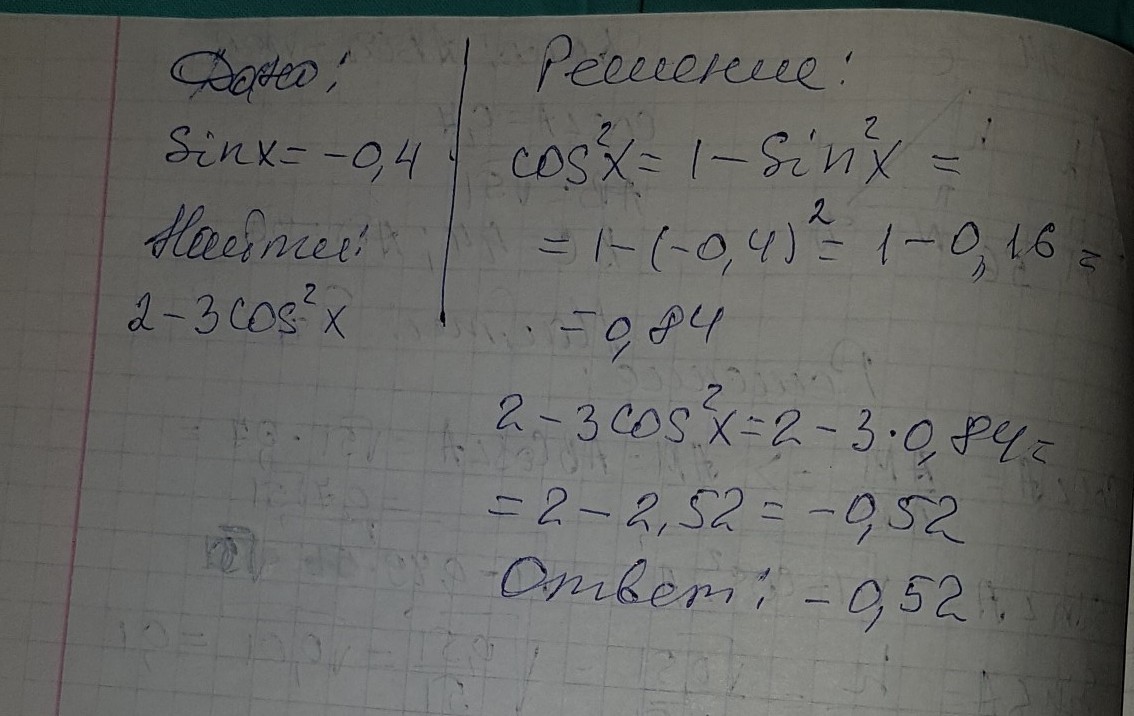 Дано:
sinx = -0,4
Найти:
2-3cos²x
Решение:
cos²x = 1 - sin²x =
= 1-(-0,4)² = 1-0,16 =
= 0,84
2-3cos²x = 2-3·0,84 =
= 2-2,52 = -0,52
Ответ: -0,52